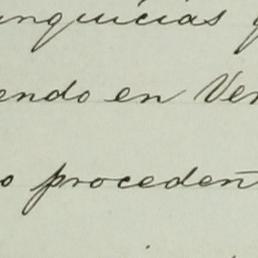 unquicias
endo en Ven
o proceden